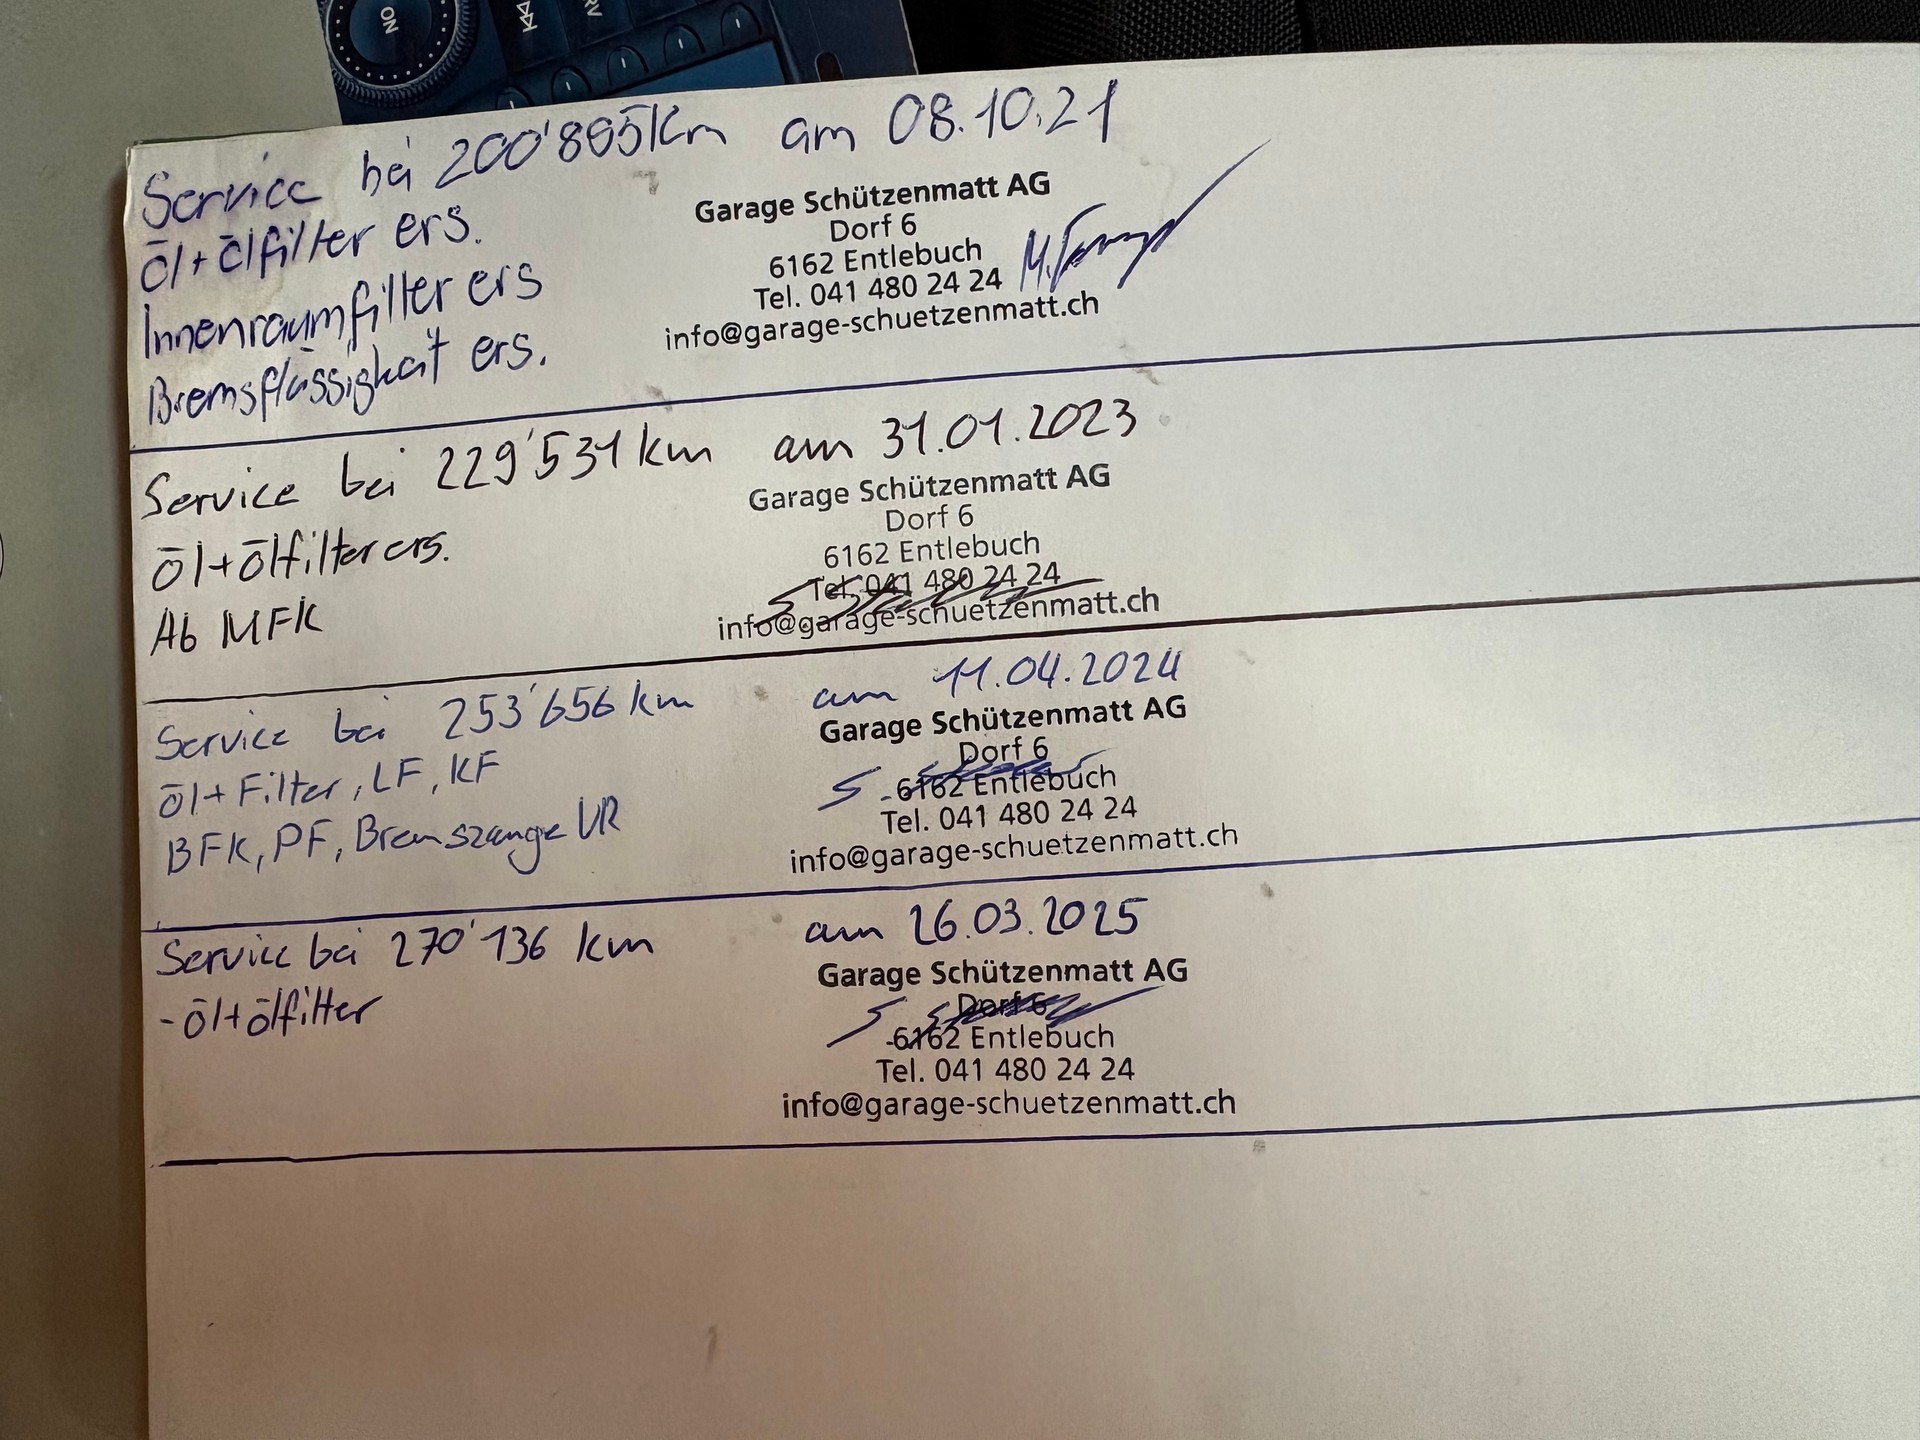 ON
RV
Service bei 200'805km am 08.10.21
Garage Schützenmatt AG
Dorf 6
6162 Entlebuch
Tel. 041 480 24 24
info@garage-schuetzenmatt.ch
Öl+Ölfilter ers.
Innenraumfilter ers
Bremsflüssigkeit ers.
Service bei 229'531km am 31.01.2023
Garage Schützenmatt AG
Dorf 6
6162 Entlebuch
Tel. 041 480 24 24
info@garage-schuetzenmatt.ch
Öl+Ölfilter ers.
Ab MFK
Service bei 253'656km am 11.04.2024
Garage Schützenmatt AG
Dorf 6
6162 Entlebuch
Tel. 041 480 24 24
info@garage-schuetzenmatt.ch
Öl+Filter, LF, KF
BFK, PF, Bremszange VR
Service bei 270'136 km am 26.03.2025
Garage Schützenmatt AG
Dorf 6
6162 Entlebuch
Tel. 041 480 24 24
info@garage-schuetzenmatt.ch
-Öl+Ölfilter